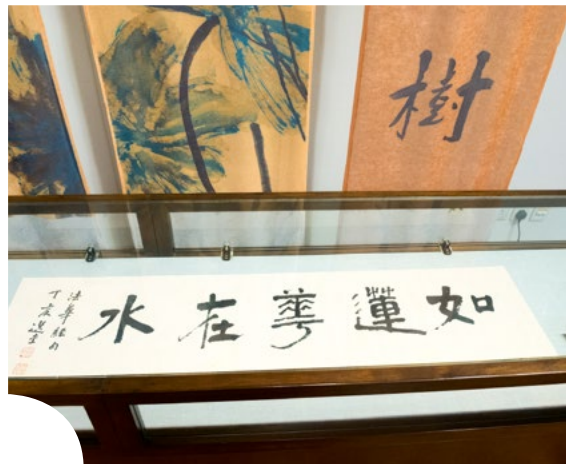 樹
如蓮華在水
法華經句